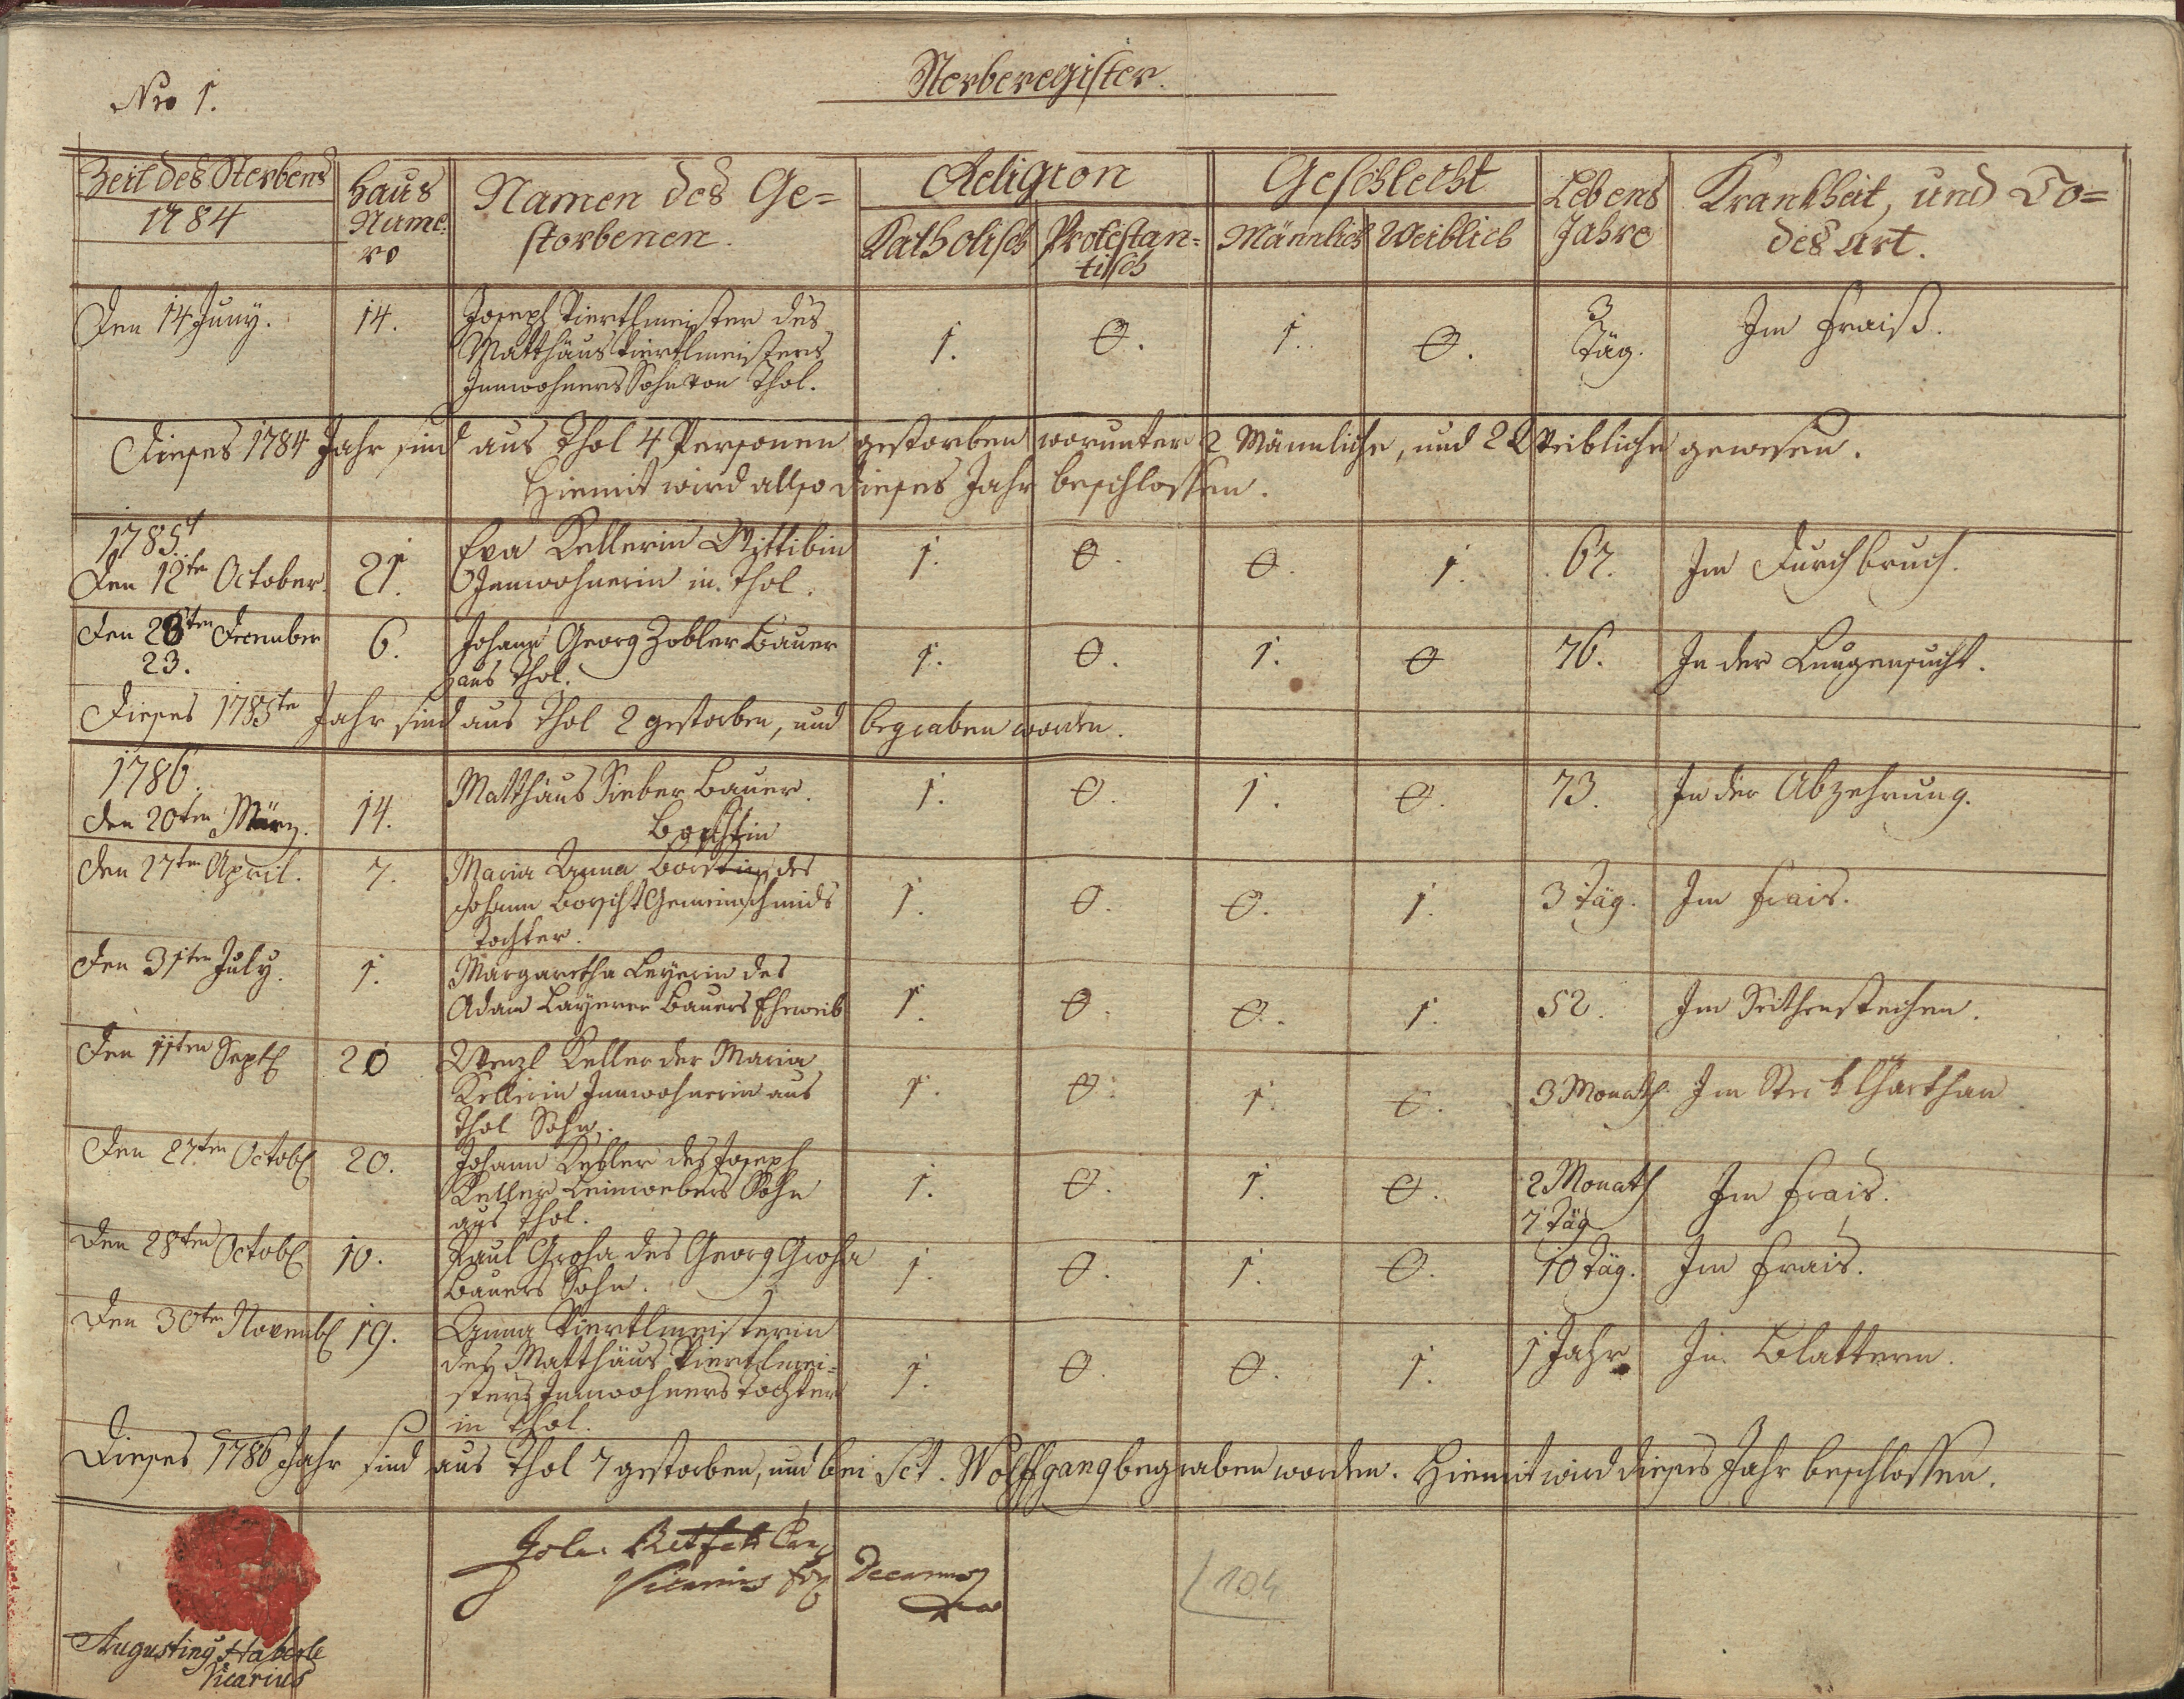 Nro 1.
Sterberegister.
Zeit des Sterbens
1784
Haus
Nume:
ro
Namen des Ge=
storbenen.
Religion
Katholisch
Protestan=
tisch
Geschlecht
Männlich
Weiblich
Lebens
Jahre
Krankheit, und To=
des Art.
Den 14 Juny. 14. Joseph Viertlmeister des 1. 0. 1. 0. 3 Im Fraiß.
Matthäus Viertlmeisters Täg.
Innwohners Sohn von Thol.
Dieses 1784 Jahr sind aus Thol 4 Personen gestorben worunter 2 Männliche, und 2 Weibliche gewesen.
Hiemit wird allso dieses Jahr beschlossen.
1785
Den 12ten October. 21. Eva Kellerin Wittibin 1. 0. 0. 1. 67. Im Durchbruch.
Innwohnerin in Thol.
Den 28ten December 6. Johann Georg Zobler Bauer 1. 0. 1. 0 76. In der Lungensucht.
23. aus Thol.
Dieses 1785te Jahr sind aus Thol 2 gestorben, und begraben worden.
1786.
Den 20ten März. 14. Matthäus Sieber Bauer. 1. 0. 1. 0. 73. In der Abzehrung.
Borschtin
Den 27ten April. 7. Maria Anna des 1. 0. 0. 1. 3 Täg. Im Frais.
Johann Borscht Gemeinschmids
Tochter.
Den 31ten July. 1. Margaretha Leyerin des 1. 0. 0. 1. 52. Im Seithenstechen.
Adam Layerer Bauers Eheweib
Den 11ten Septb 20 Wenzl Keller der Maria 1. 0. 1. 0. 3 Monath. Im
Kellerin Innwohnerin aus
Thol Sohn.
Den 27ten Octob 20. Johann Keller des Joseph 1. 0. 1. 0. 2 Monath Im Frais.
Keller Leinwebers Sohn 7 Täg
aus Thol.
Den 28ten Octob 10. Paul Groha des Georg Groha 1. 0. 1. 0. 10 Täg. Im Frais.
Bauers Sohn.
Den 30ten Novemb 19. Anna Viertlmeisterin 1. 0. 0. 1. 1 Jahr In Blattern.
des Matthäus Viertlmei=
sters Innwohners Tochter
in Thol.
Dieses 1786 Jahr sind aus Thol 7 gestorben, und bei Sct. Wolffgang begraben worden. Hiemit wird dieses Jahr beschlossen.
Vicarius Decanus
104
Augustiny Haberle
Vicarius